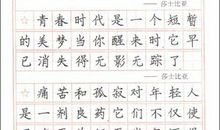 ☆青春时代是一个短暂
的美梦当你醒来时它早
已消失得无影无踪了
——莎士比亚
☆痛苦和孤寂对年轻人
是一剂良药它们不仅使